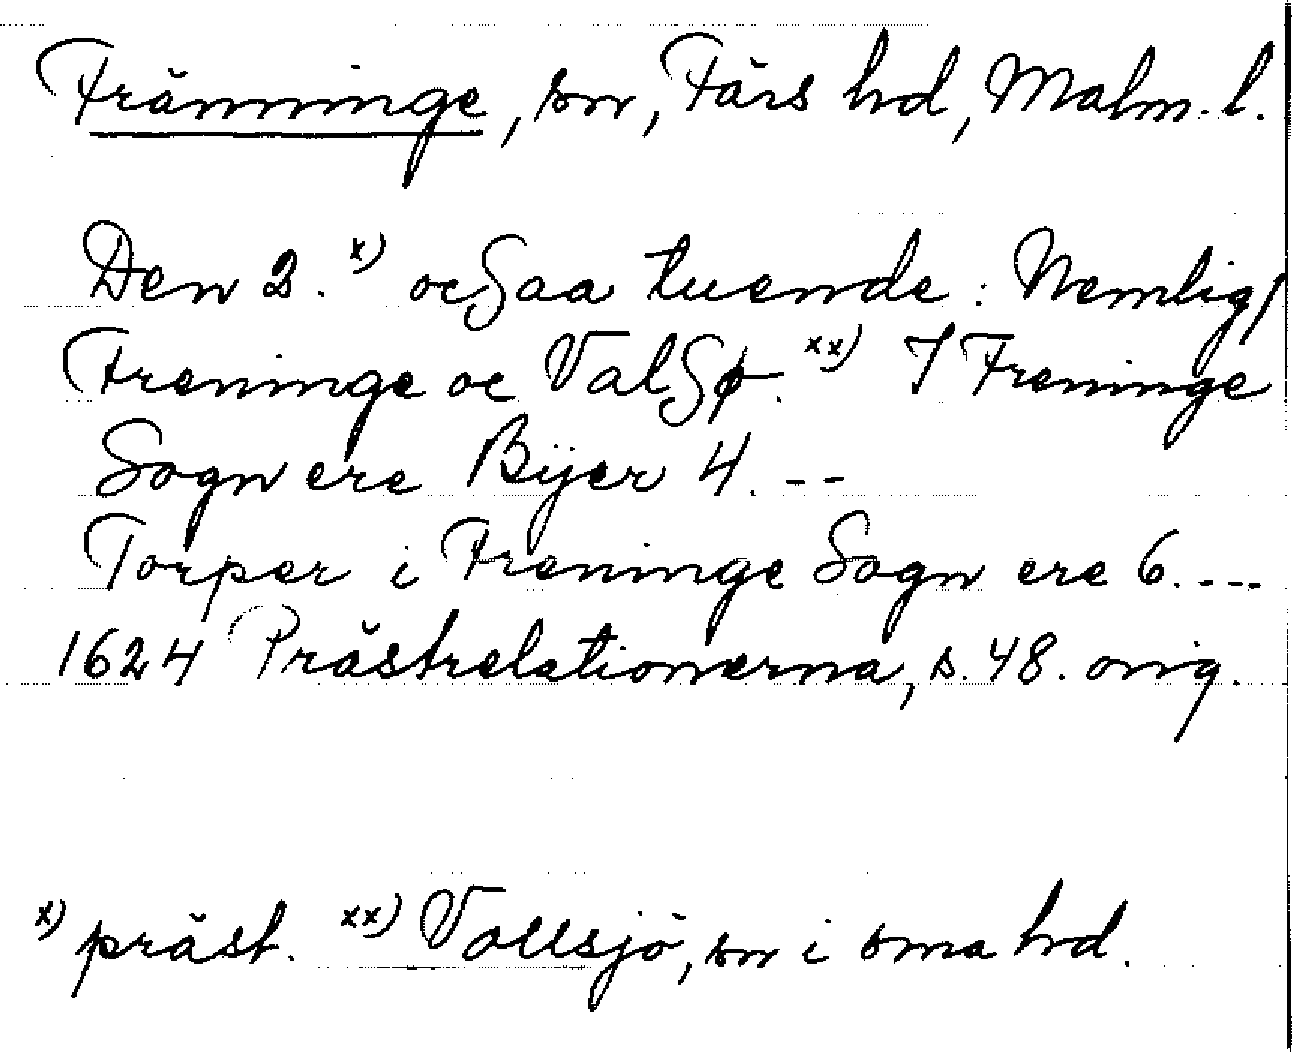 Fränninge, sn, Färs hd, Malm. l.
Den 2. x) ocsaa tuende: Nemlig/
Freninge oc Valsø. xx) I Freninge
Sogn ere Byer 4. --
Torper i Freninge Sogn ere 6. ---
1624 Prästrelationerna, s. 48. orig.
x) präst. xx) Vollsjö, sn i sma hd.